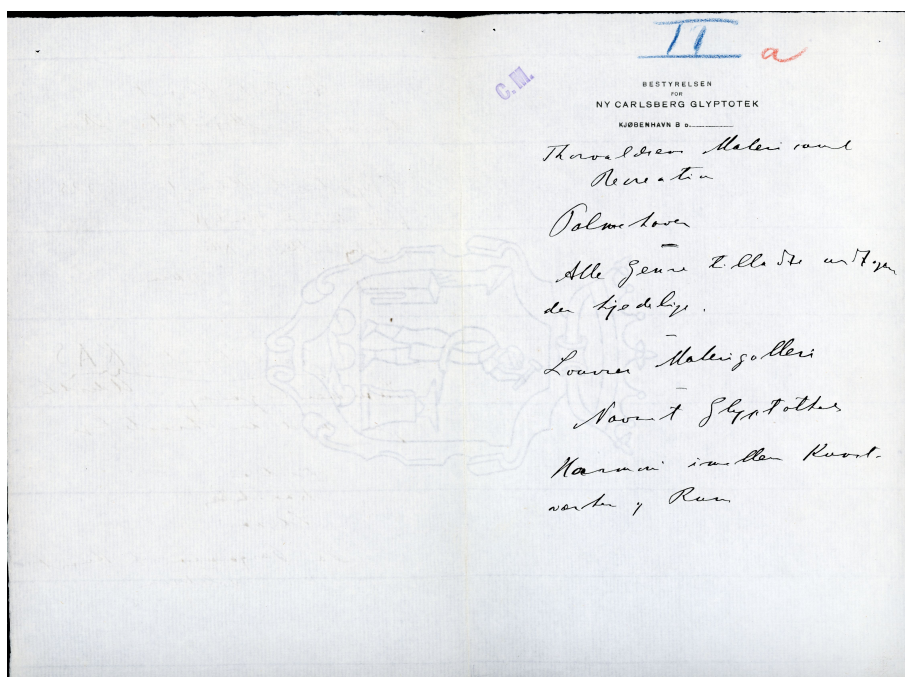 II a
C.M.
BESTYRELSEN
FOR
NY CARLSBERG GLYPTOTEK
KJØBENHAVN B D.
Thorvaldsens Maleri samt
Recreation
Palmehaven
Alle Genre tilladte undtagen
den kjedelige.
Louvres Malerigalleri
Navnet Glyptothek
Harmoni imellem Kunst-
værker og Rum